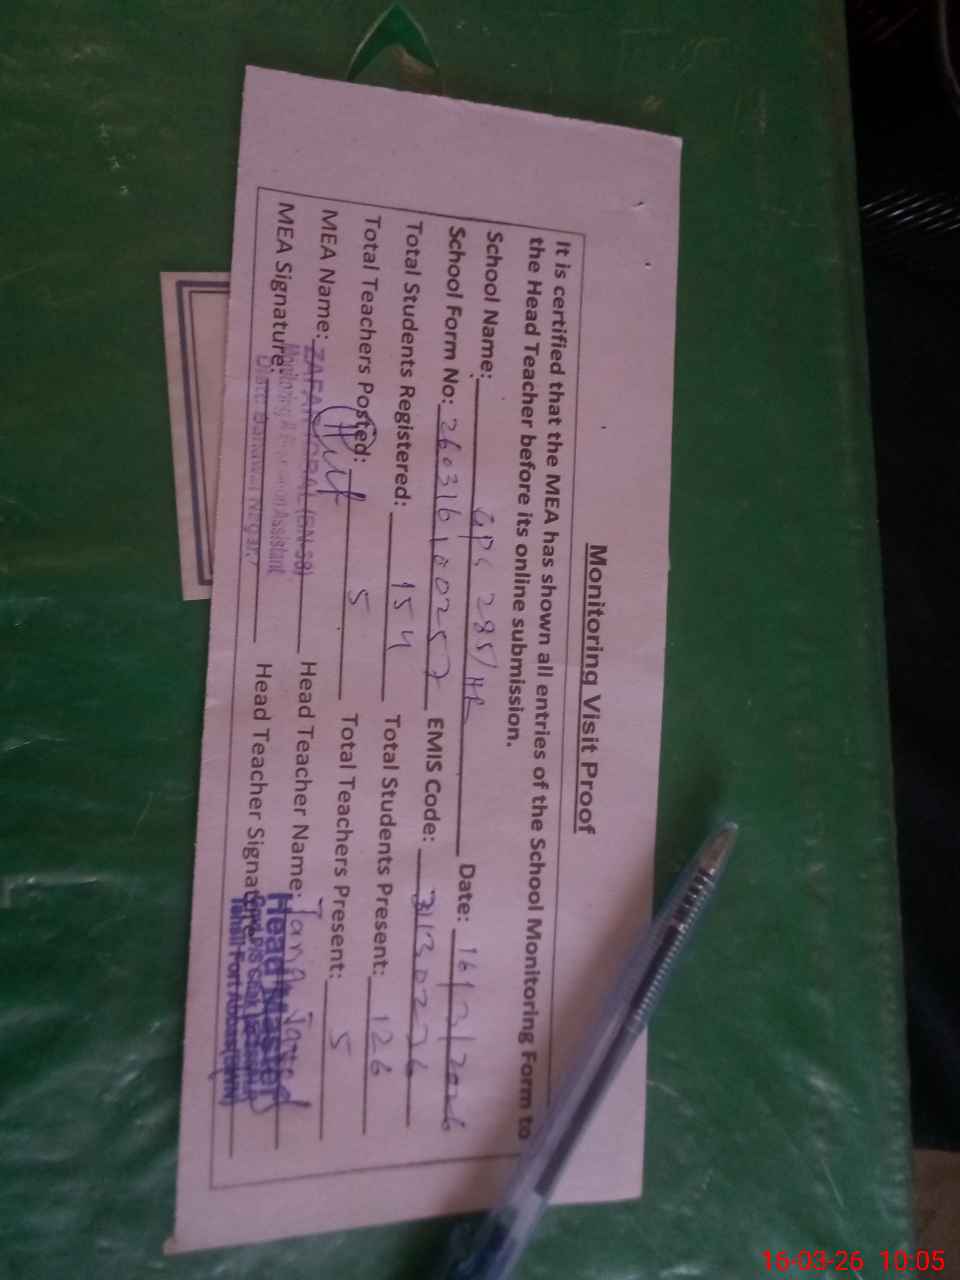 Monitoring Visit Proof
It is certified that the MEA has shown all entries of the School Monitoring Form to
the Head Teacher before its online submission.
School Name: GPS 285/HR Date: 16/3/2026
School Form No: 260316100257 EMIS Code: 31130276
Total Students Registered: 154 Total Students Present: 126
Total Teachers Posted: 5 Total Teachers Present: 5
MEA Name: ZAFAR IQBAL (BN-38) Head Teacher Name: Tariq Javed
Monitoring & Evaluation Assistant
MEA Signature: Head Teacher Signature:
Distt: Bahawal Nagar
Head Master
Tehsil Fort Abbas (BWN)
16-03-26 10:05